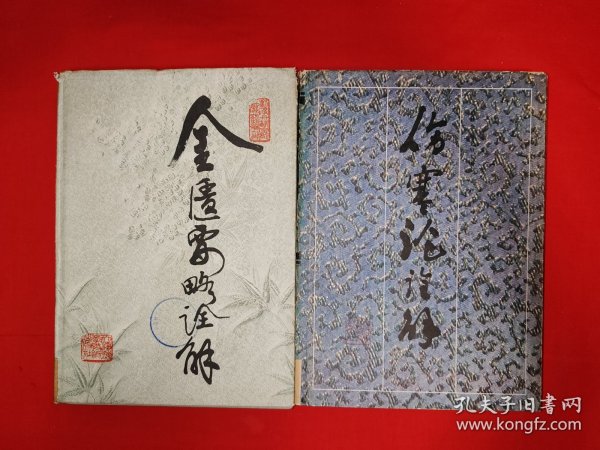 金匮要略诠解
伤寒论诠解
孔夫子旧书网
www.kongfz.com